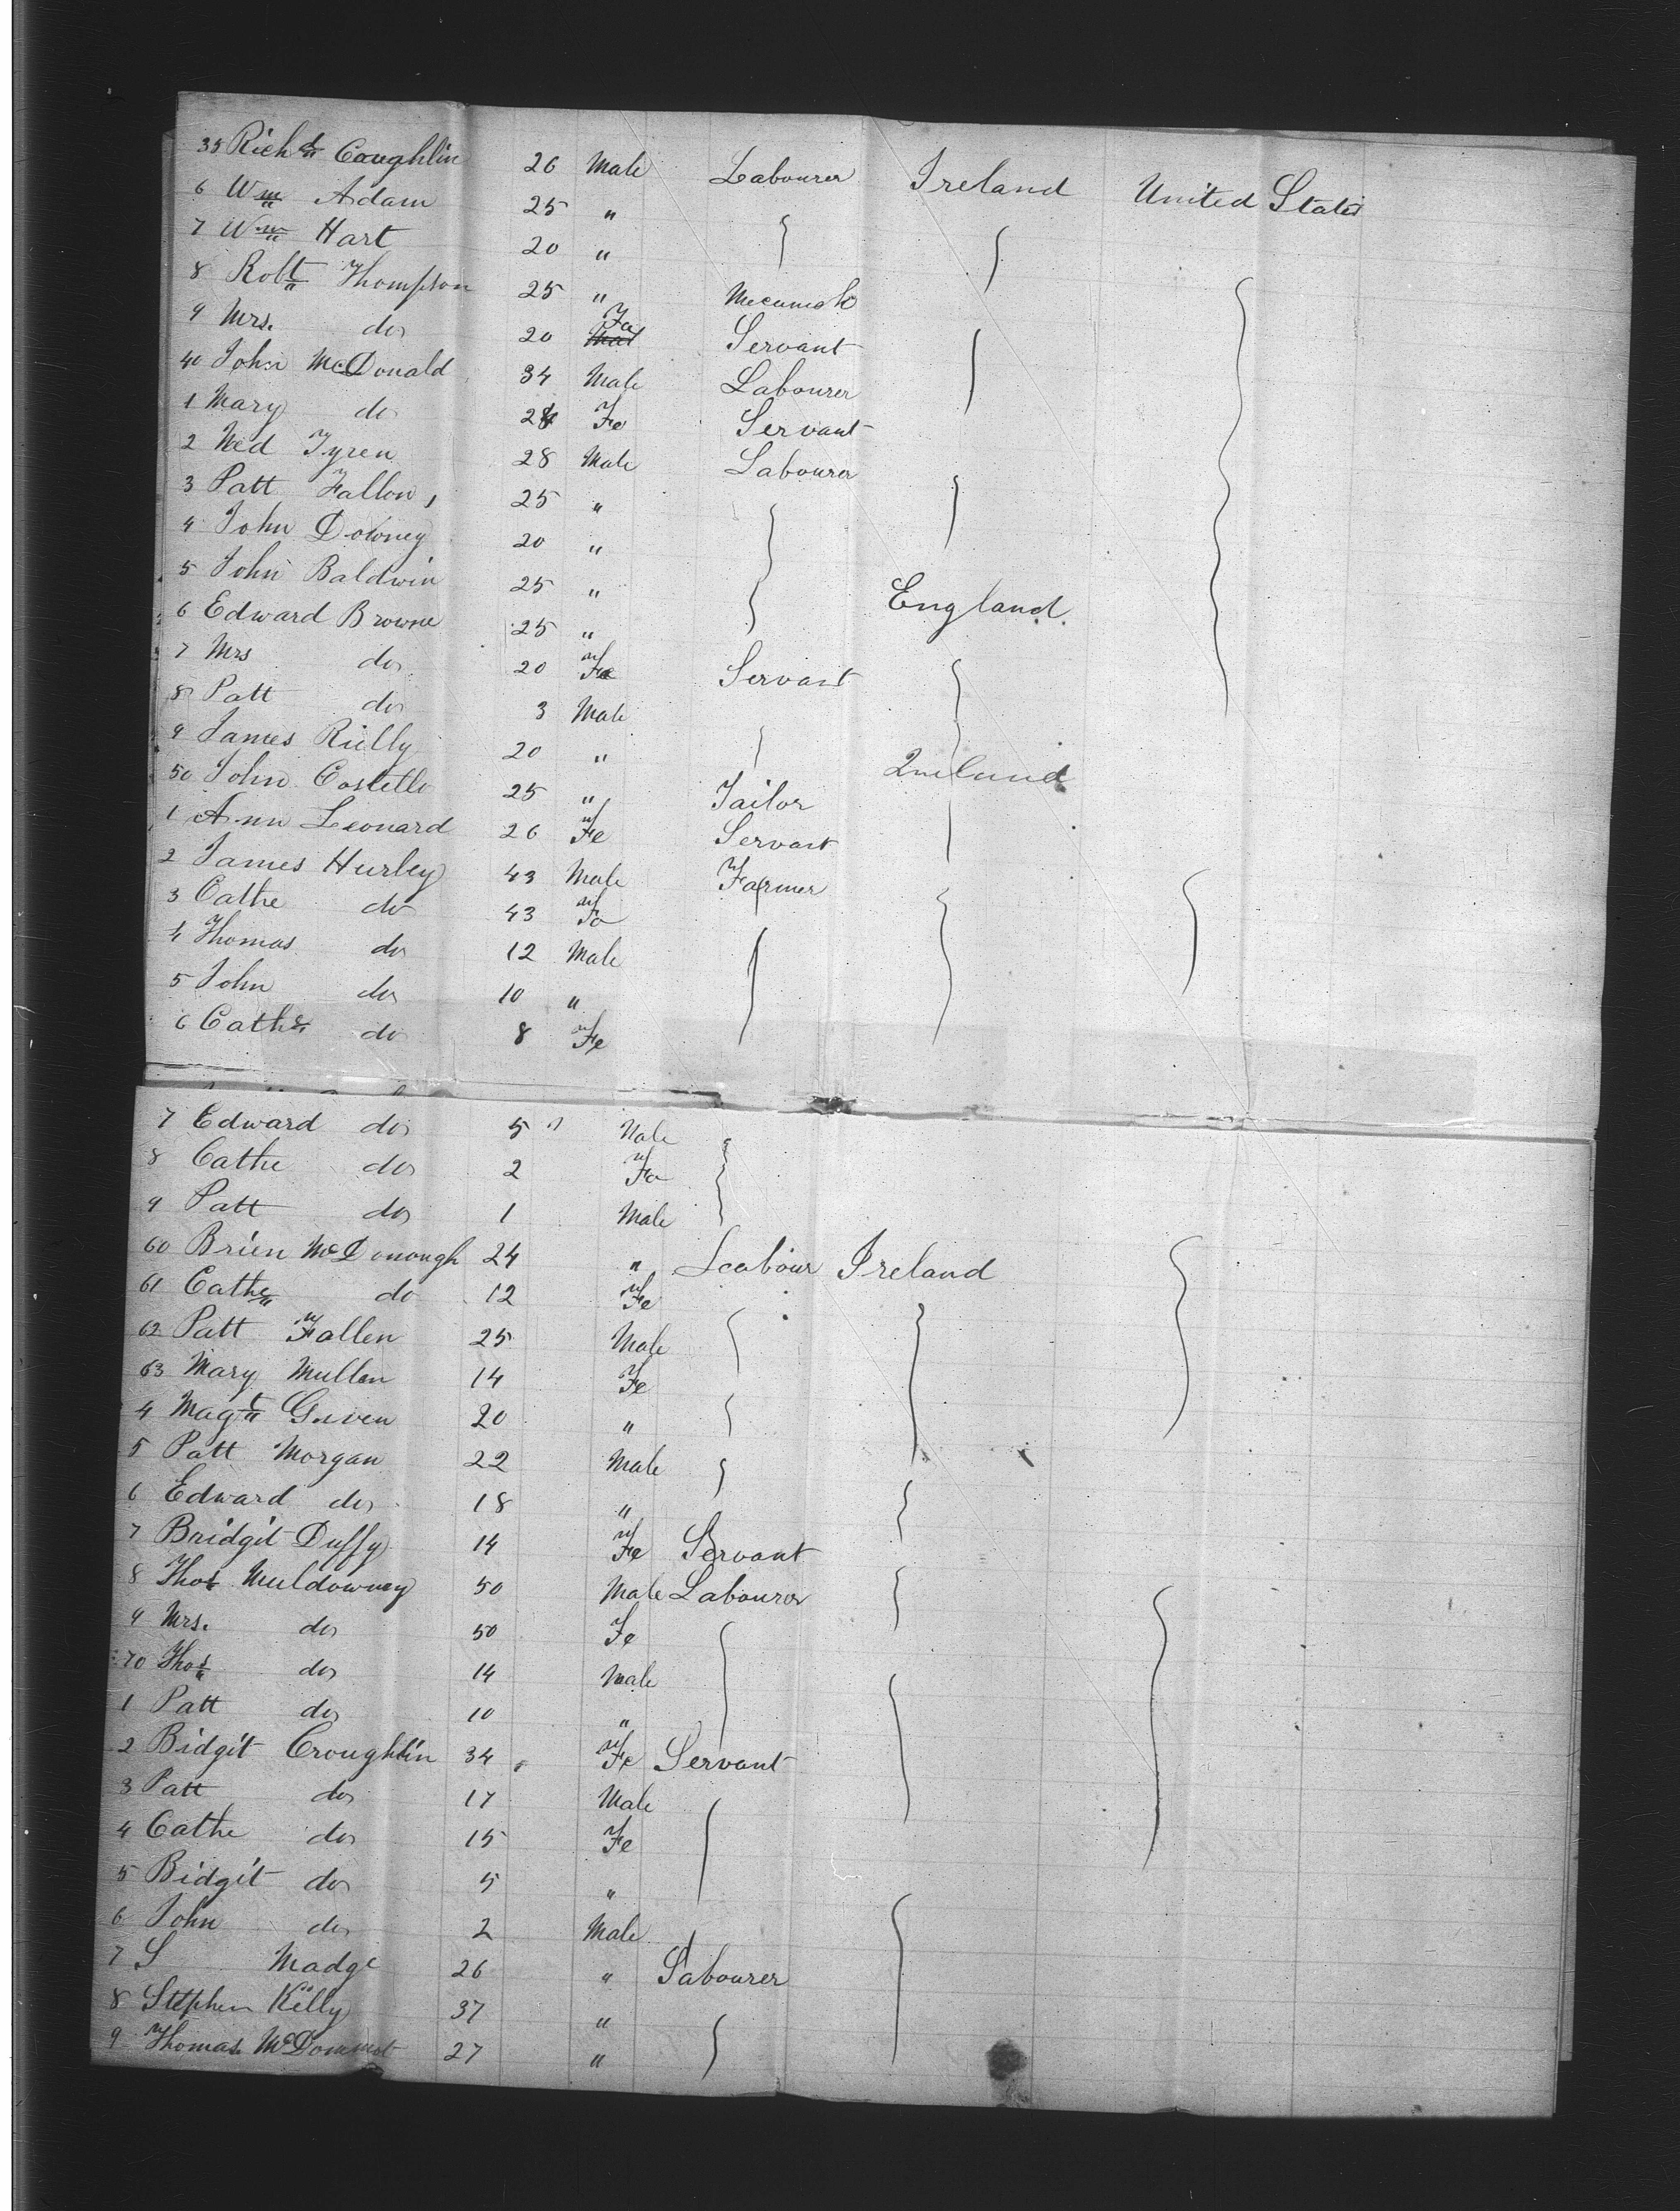 35 Richd Coughlin 26 Male Labourer Ireland United States
6 Wm Adam 25 "
7 Wm Hart 20 "
8 Robt Thompson 25 "
9 Mrs. do 20 Fe Servant
40 John McDonald 34 Male Labourer
1 Mary do 24 Fe Servant
2 Ned Tyren 28 Male Labourer
3 Patt Fallon 25 "
4 John Downey 20 "
5 John Baldwin 25 " England
6 Edward Browne 25 "
7 Mrs do 20 Fe Servant
8 Patt do 3 Male
9 James Rielly 20 " Ireland
50 John Costello 25 " Tailor
1 Ann Leonard 26 Fe Servant
2 James Hurley 43 Male Farmer
3 Cathe do 43 Fe
4 Thomas do 12 Male
5 John do 10 "
6 Cathe do 8 Fe
7 Edward do 5 Male
8 Cathe do 2 Fe
9 Patt do 1 Male
60 Brien McDonough 24 " Labour Ireland
61 Cathe do 12 Fe
62 Patt Fallen 25 Male
63 Mary Mullen 14 Fe
4 Magt Given 20 "
5 Patt Morgan 22 Male
6 Edward do 18 "
7 Bridgit Duffy 14 Fe Servant
8 Thos Muldowney 50 Male Labourer
9 Mrs. do 50 Fe
70 Thos do 14 Male
1 Patt do 10 "
2 Bidgit Croughlin 34 Fe Servant
3 Patt do 17 Male
4 Cathe do 15 Fe
5 Bidgit do 5 "
6 John do 2 Male
7 S Madge 26 " Labourer
8 Stephen Killy 37 "
9 Thomas McDommot 27 "